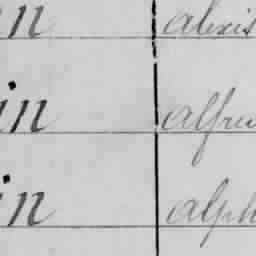 in alexis
in alfre
in alph